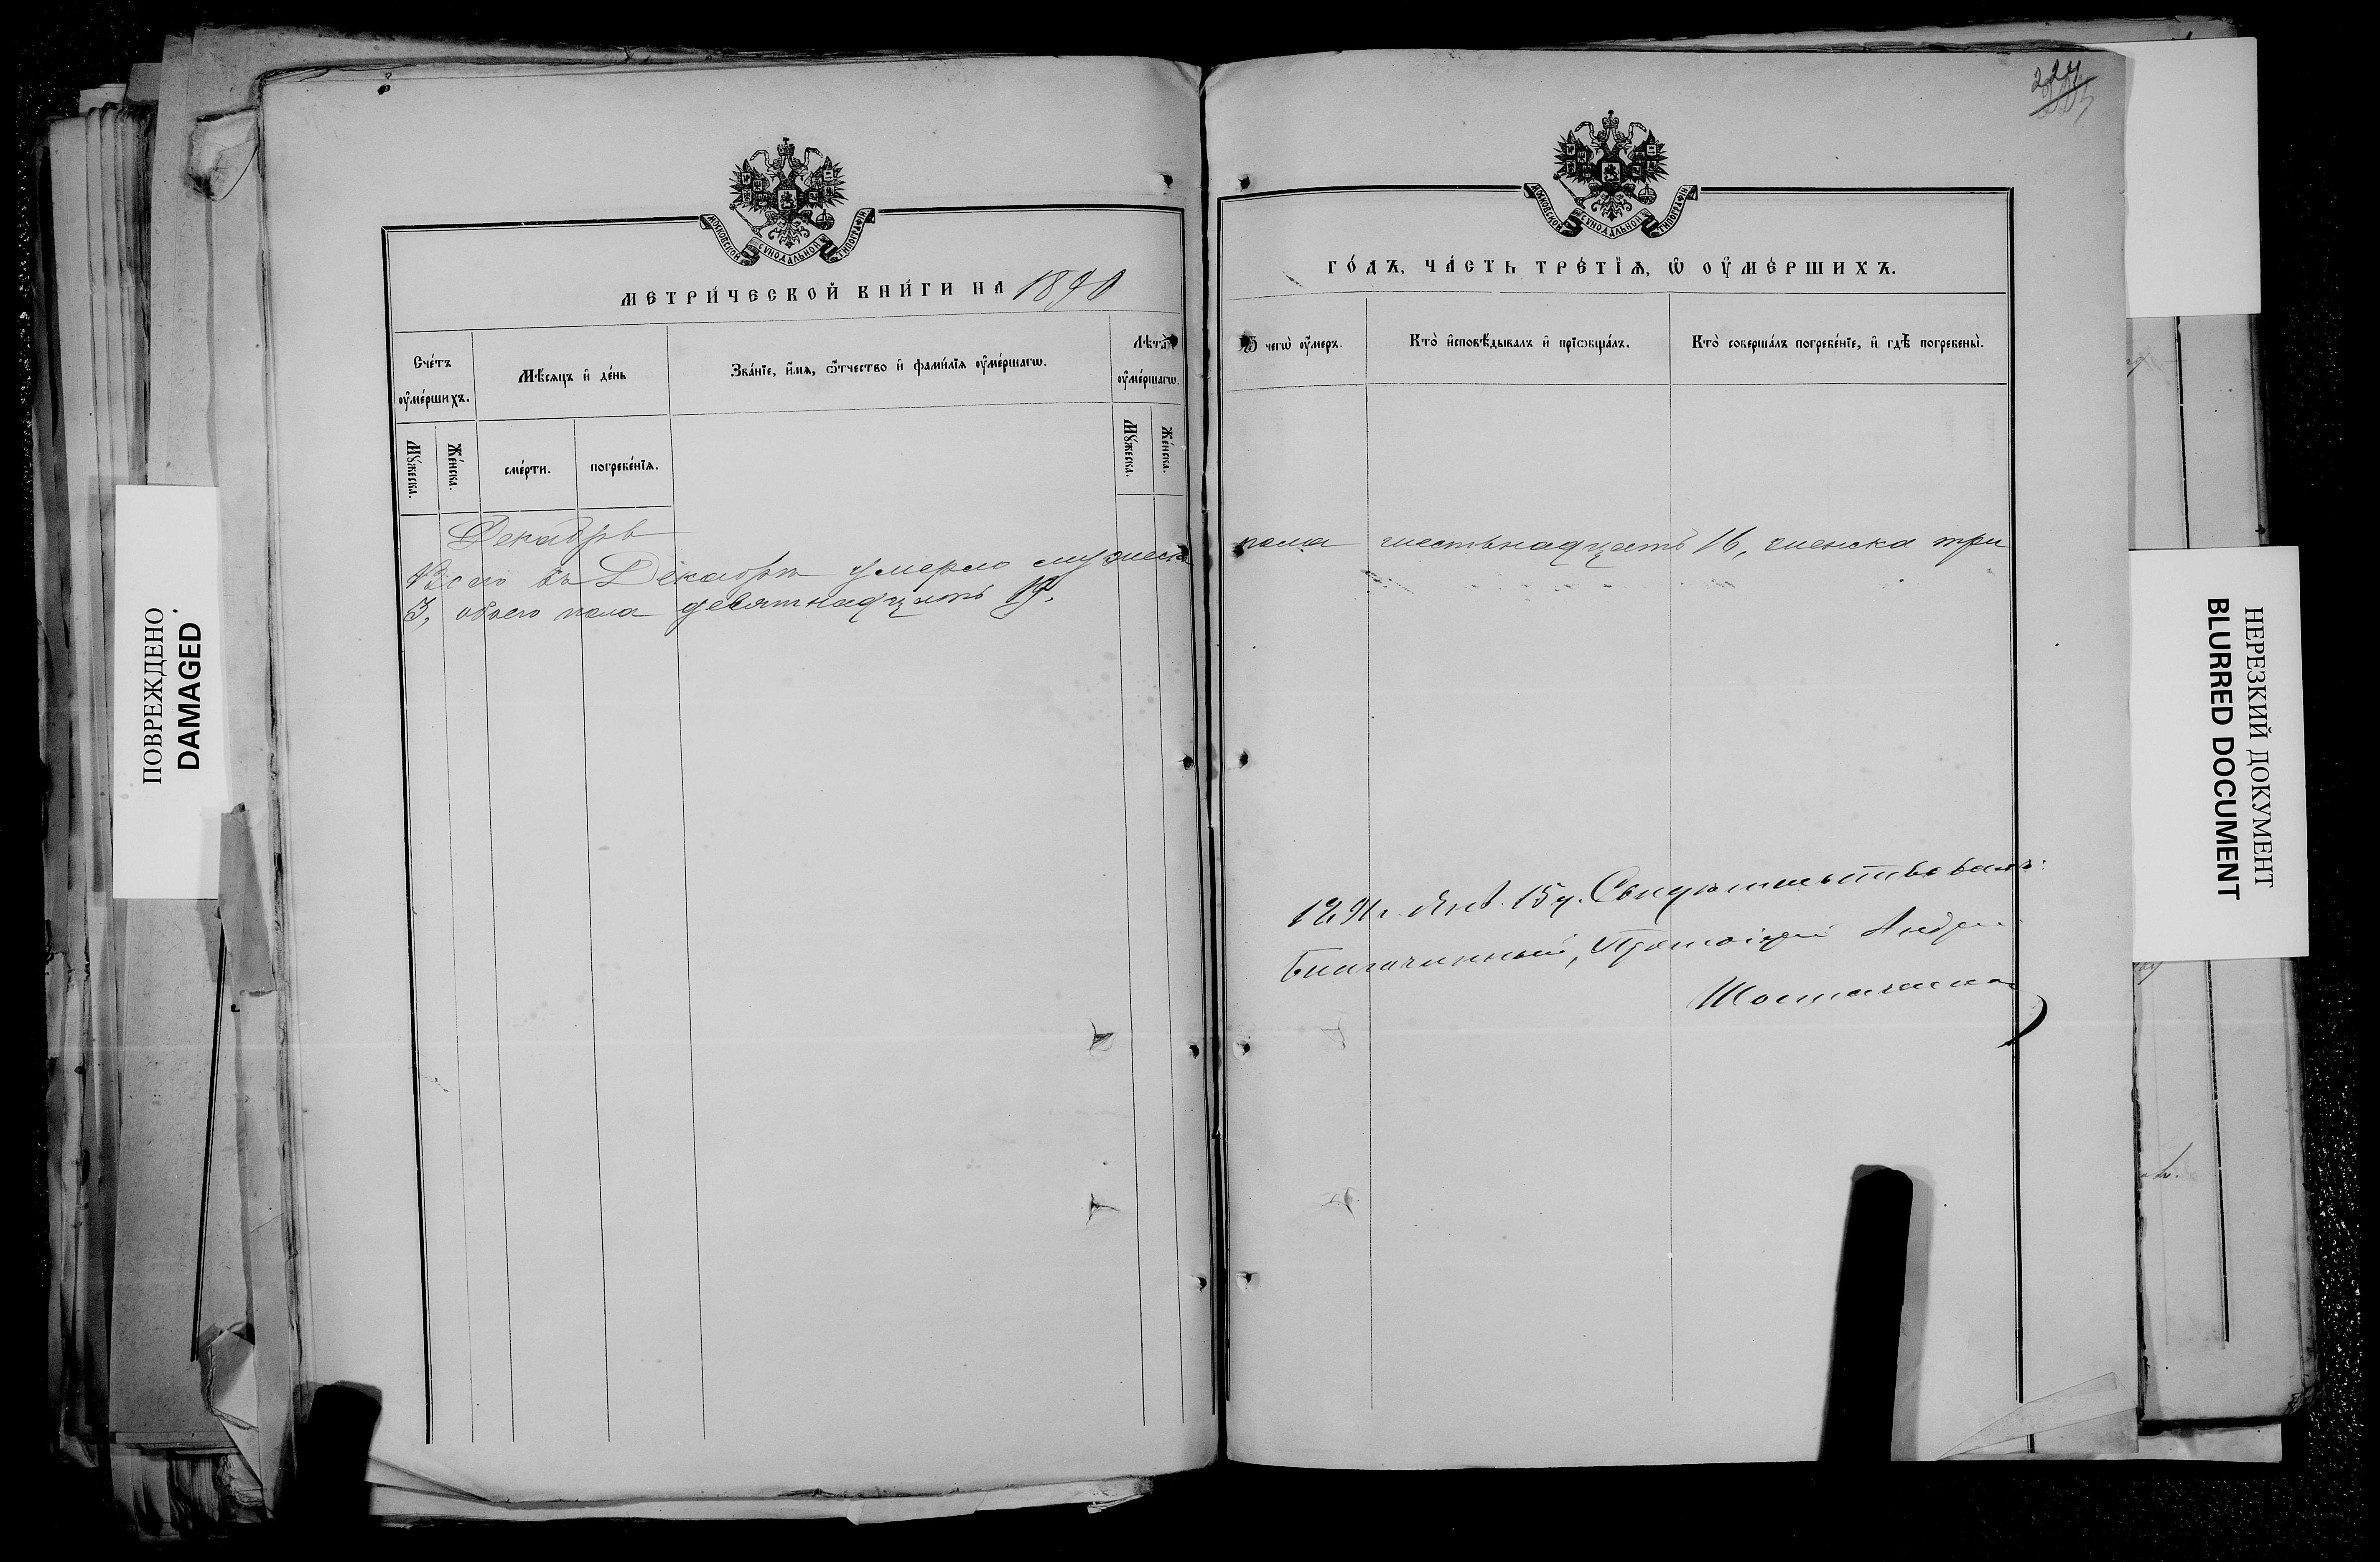 МОСКОВСКОЙ СѴНОДАЛЬНОЙ ТИПОГРАФІИ
МЕТРИ́ЧЕСКОЙ КНИ́ГИ НА 1890
Сче́тъ ᲂу҆ме́ршихъ.
Мѣ́сяцъ и҆ де́нь
Зва́нїе, и҆́мѧ, ѻ҆́тчество и҆ фами́лїѧ ᲂу҆ме́ршагѡ.
Лѣ́та ᲂу҆ме́ршагѡ.
Мꙋ́жеска.
Же́нска.
сме́рти.
погребе́нїѧ.
Мꙋ́жеска.
Же́нска.
Декабрь
Всего въ Декабрѣ умерло мужеска
3, обоего пола девятнадцать 19.
224
МОСКОВСКОЙ СѴНОДАЛЬНОЙ ТИПОГРАФІИ
ГО́ДЪ, ЧА́СТЬ ТРЕ́ТЇѦ, Ѡ҆ ОУ҆МЕ́РШИХЪ.
Ѿ чегѡ̀ ᲂу҆́меръ.
Кто̀ и҆сповѣ́дывалъ и҆ прїѡбща́лъ.
Кто̀ соверша́лъ погребе́нїе, и҆ гдѣ̀ погребены̀.
пола шестьнадцать 16, женска три
1891 г. Янв. 15 д. Свидѣтельствовалъ:
Благочинный, Протоіерей Андрей
ПОВРЕЖДЕНО
DAMAGED
НЕРЕЗКИЙ ДОКУМЕНТ
BLURRED DOCUMENT